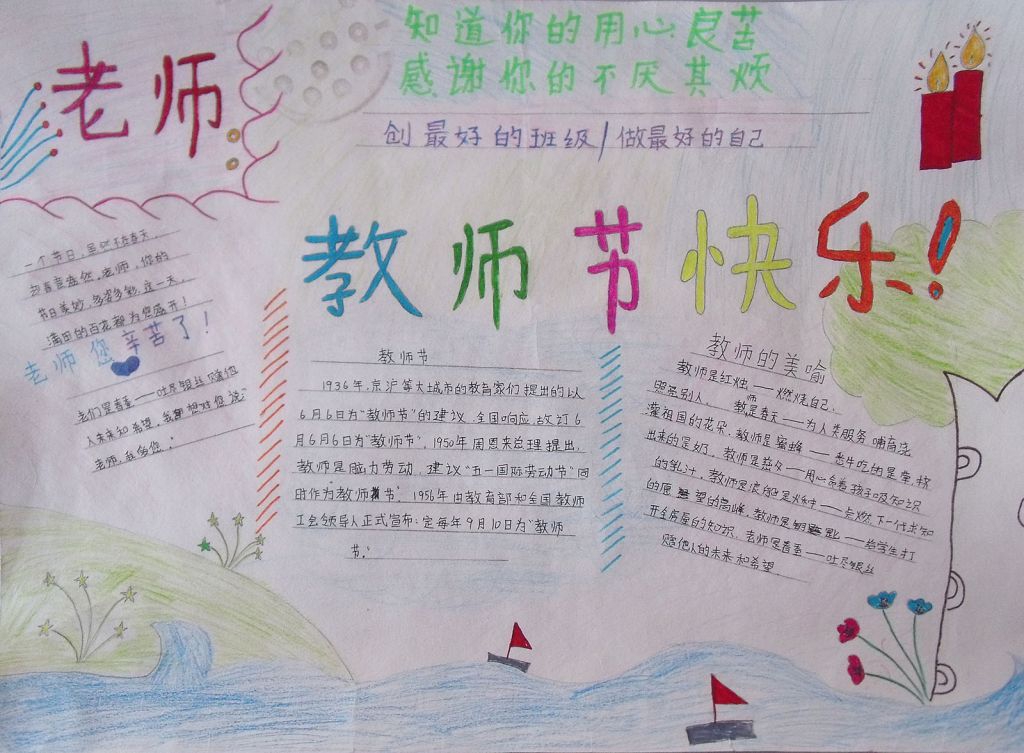 老师
知道你的用心良苦
感谢你的不厌其烦
创最好的班级/做最好的自己
教师节快乐!
一个节日,虽然不在春天,
却春意盎然,老师,你的
节日美妙,多姿多彩,这一天,
满田的百花都为您盛开!
老师您辛苦了!
老们是春蚕——吐尽银丝 赐他
人未来和希望,我都想对您说:
老师,
教师节
1936年,京沪等大城市的教育家们提出的以
6月6日为"教师节"的建议,全国响应,故订6
月6月6日为"教师节",1950年周恩来总理提出,
教师是脑力劳动,建议"五一国际劳动节"同
时作为教师节",1956年由教育部和全国教师
工会领导人正式宣布:定每年9月10日为"教师
节。"
教师的美喻
教师是红烛——燃烧自己,
照亮别人 教师是春天——为人类服务 哺育浇
灌祖国的花朵,教师是蜜蜂——
出来的是奶,教师是 ——用心 孩子吸知识
的乳汁,教师是 火种——点燃下一代求知
的愿望的高峰,教师是钥匙——给学生打
开 的知识,老师是春蚕——吐尽银丝
赐他人的未来和希望